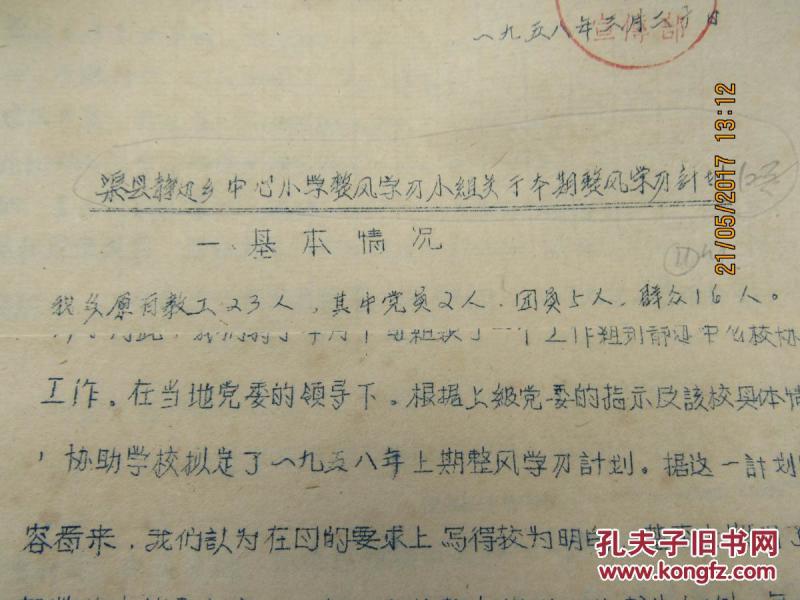 一九五八年三月二十日
宣传部
渠县静边乡中心小学整风学习小組关于本期整风学习計划
21/05/2017 13:12
一、基本情况
我乡原有教工23人，其中党员2人，团员5人，群众16人。
工作組到静边中心校协
工作。在当地党委的领导下。根据上級党委的指示及該校具体情
，协助学校拟定了一九五八年上期整风学习計划。据这一計划
容看来，我們認为在目的要求上写得较为明白
孔夫子旧书网
www.kongfz.com